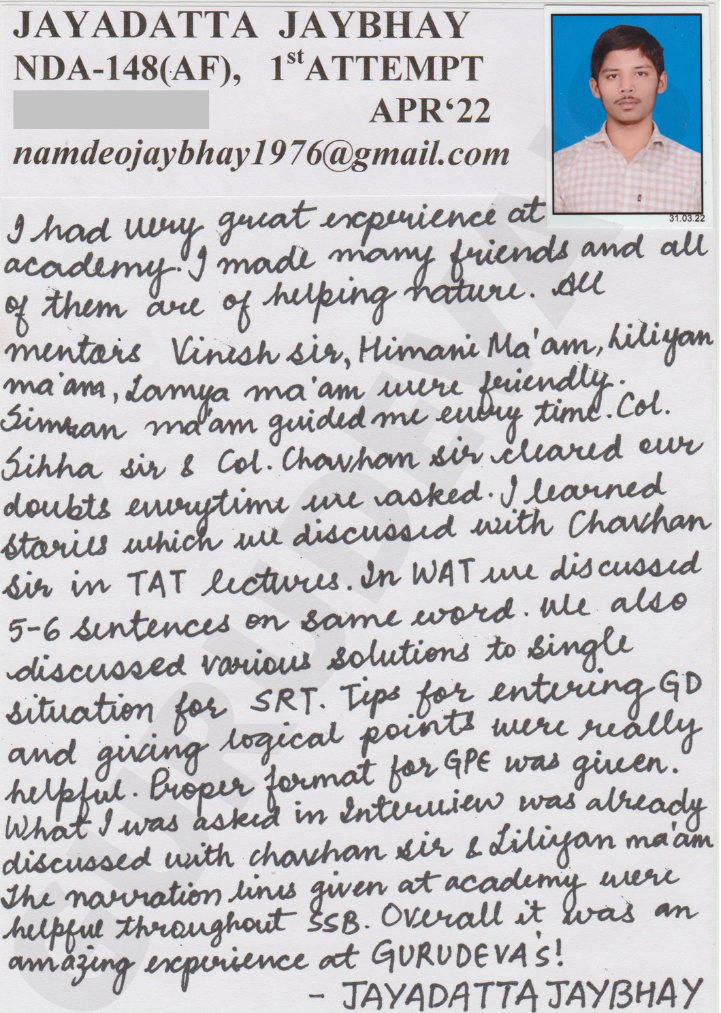 JAYADATTA JAYBHAY
NDA-148(AF), 1st ATTEMPT
APR‘22
namdeojaybhay1976@gmail.com
31.03.22
I had very great experience at
academy. I made many friends and all
of them are of helping nature. All
mentors Vinish sir, Himani Ma'am, Liliyan
ma'am, Lamya ma'am were friendly.
Simran ma'am guided me every time. Col.
Sihha sir & Col. Chavhan sir cleared our
doubts everytime we asked. I learned
stories which we discussed with Chavhan
sir in TAT lectures. In WAT we discussed
5-6 sentences on same word. We also
discussed various solutions to single
situation for SRT. Tips for entering GD
and giving logical points were really
helpful. Proper format for GPE was given.
What I was asked in Interview was already
discussed with chavhan sir & Liliyan ma'am
The narration lines given at academy were
helpful throughout SSB. Overall it was an
amazing experience at GURUDEVA's!
- JAYADATTA JAYBHAY
GURUDEVA'S